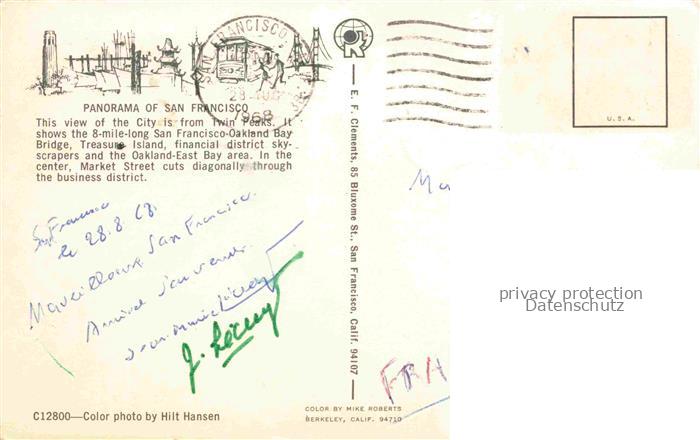 SAN FRANCISCO
28 AUG
1968
PANORAMA OF SAN FRANCISCO
This view of the City is from Twin Peaks. It
shows the 8-mile-long San Francisco-Oakland Bay
Bridge, Treasure Island, financial district sky-
scrapers and the Oakland-East Bay area. In the
center, Market Street cuts diagonally through
the business district.
S. Francisco
le 28.8.68.
Merveilleux San Francisco.
Amical souvenir.
J.
C12800—Color photo by Hilt Hansen
E. F. Clements, 85 Bluxome St., San Francisco, Calif. 94107
COLOR BY MIKE ROBERTS
BERKELEY, CALIF. 94710
U.S.A.
privacy protection
Datenschutz